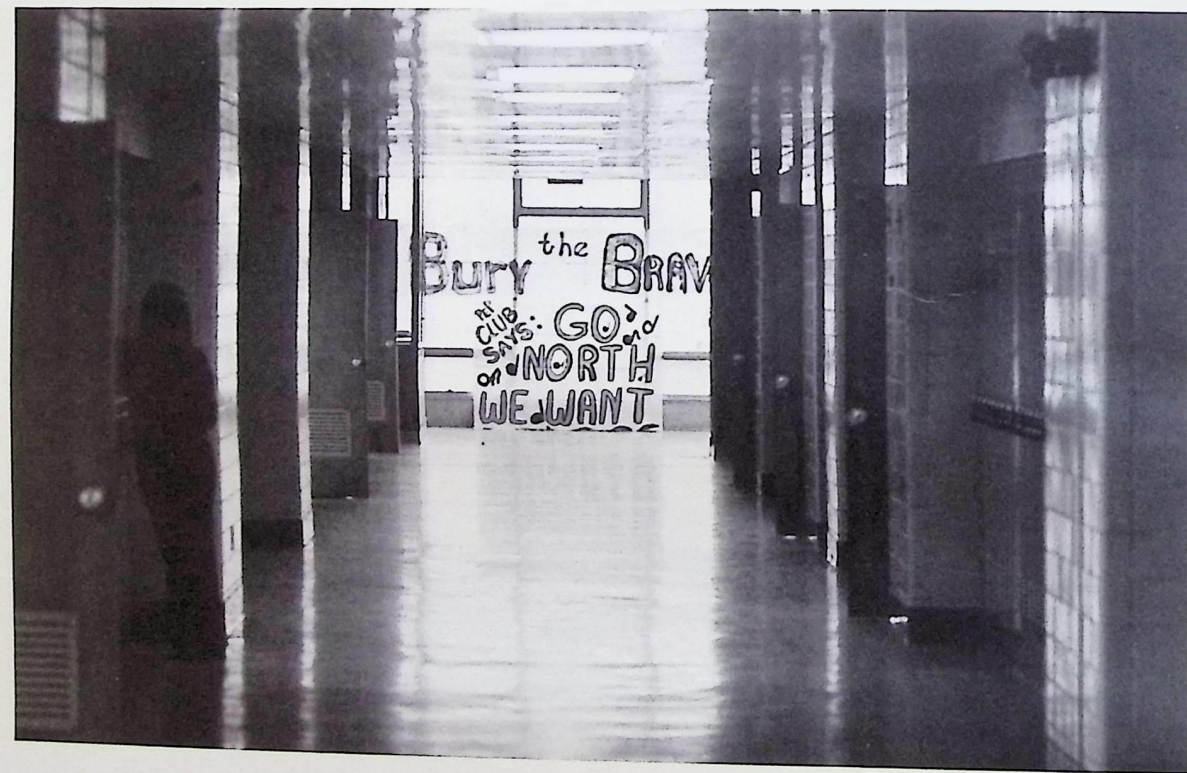 Bury the BRAV
PEP CLUB SAYS: GO
on NORTH
WE WANT